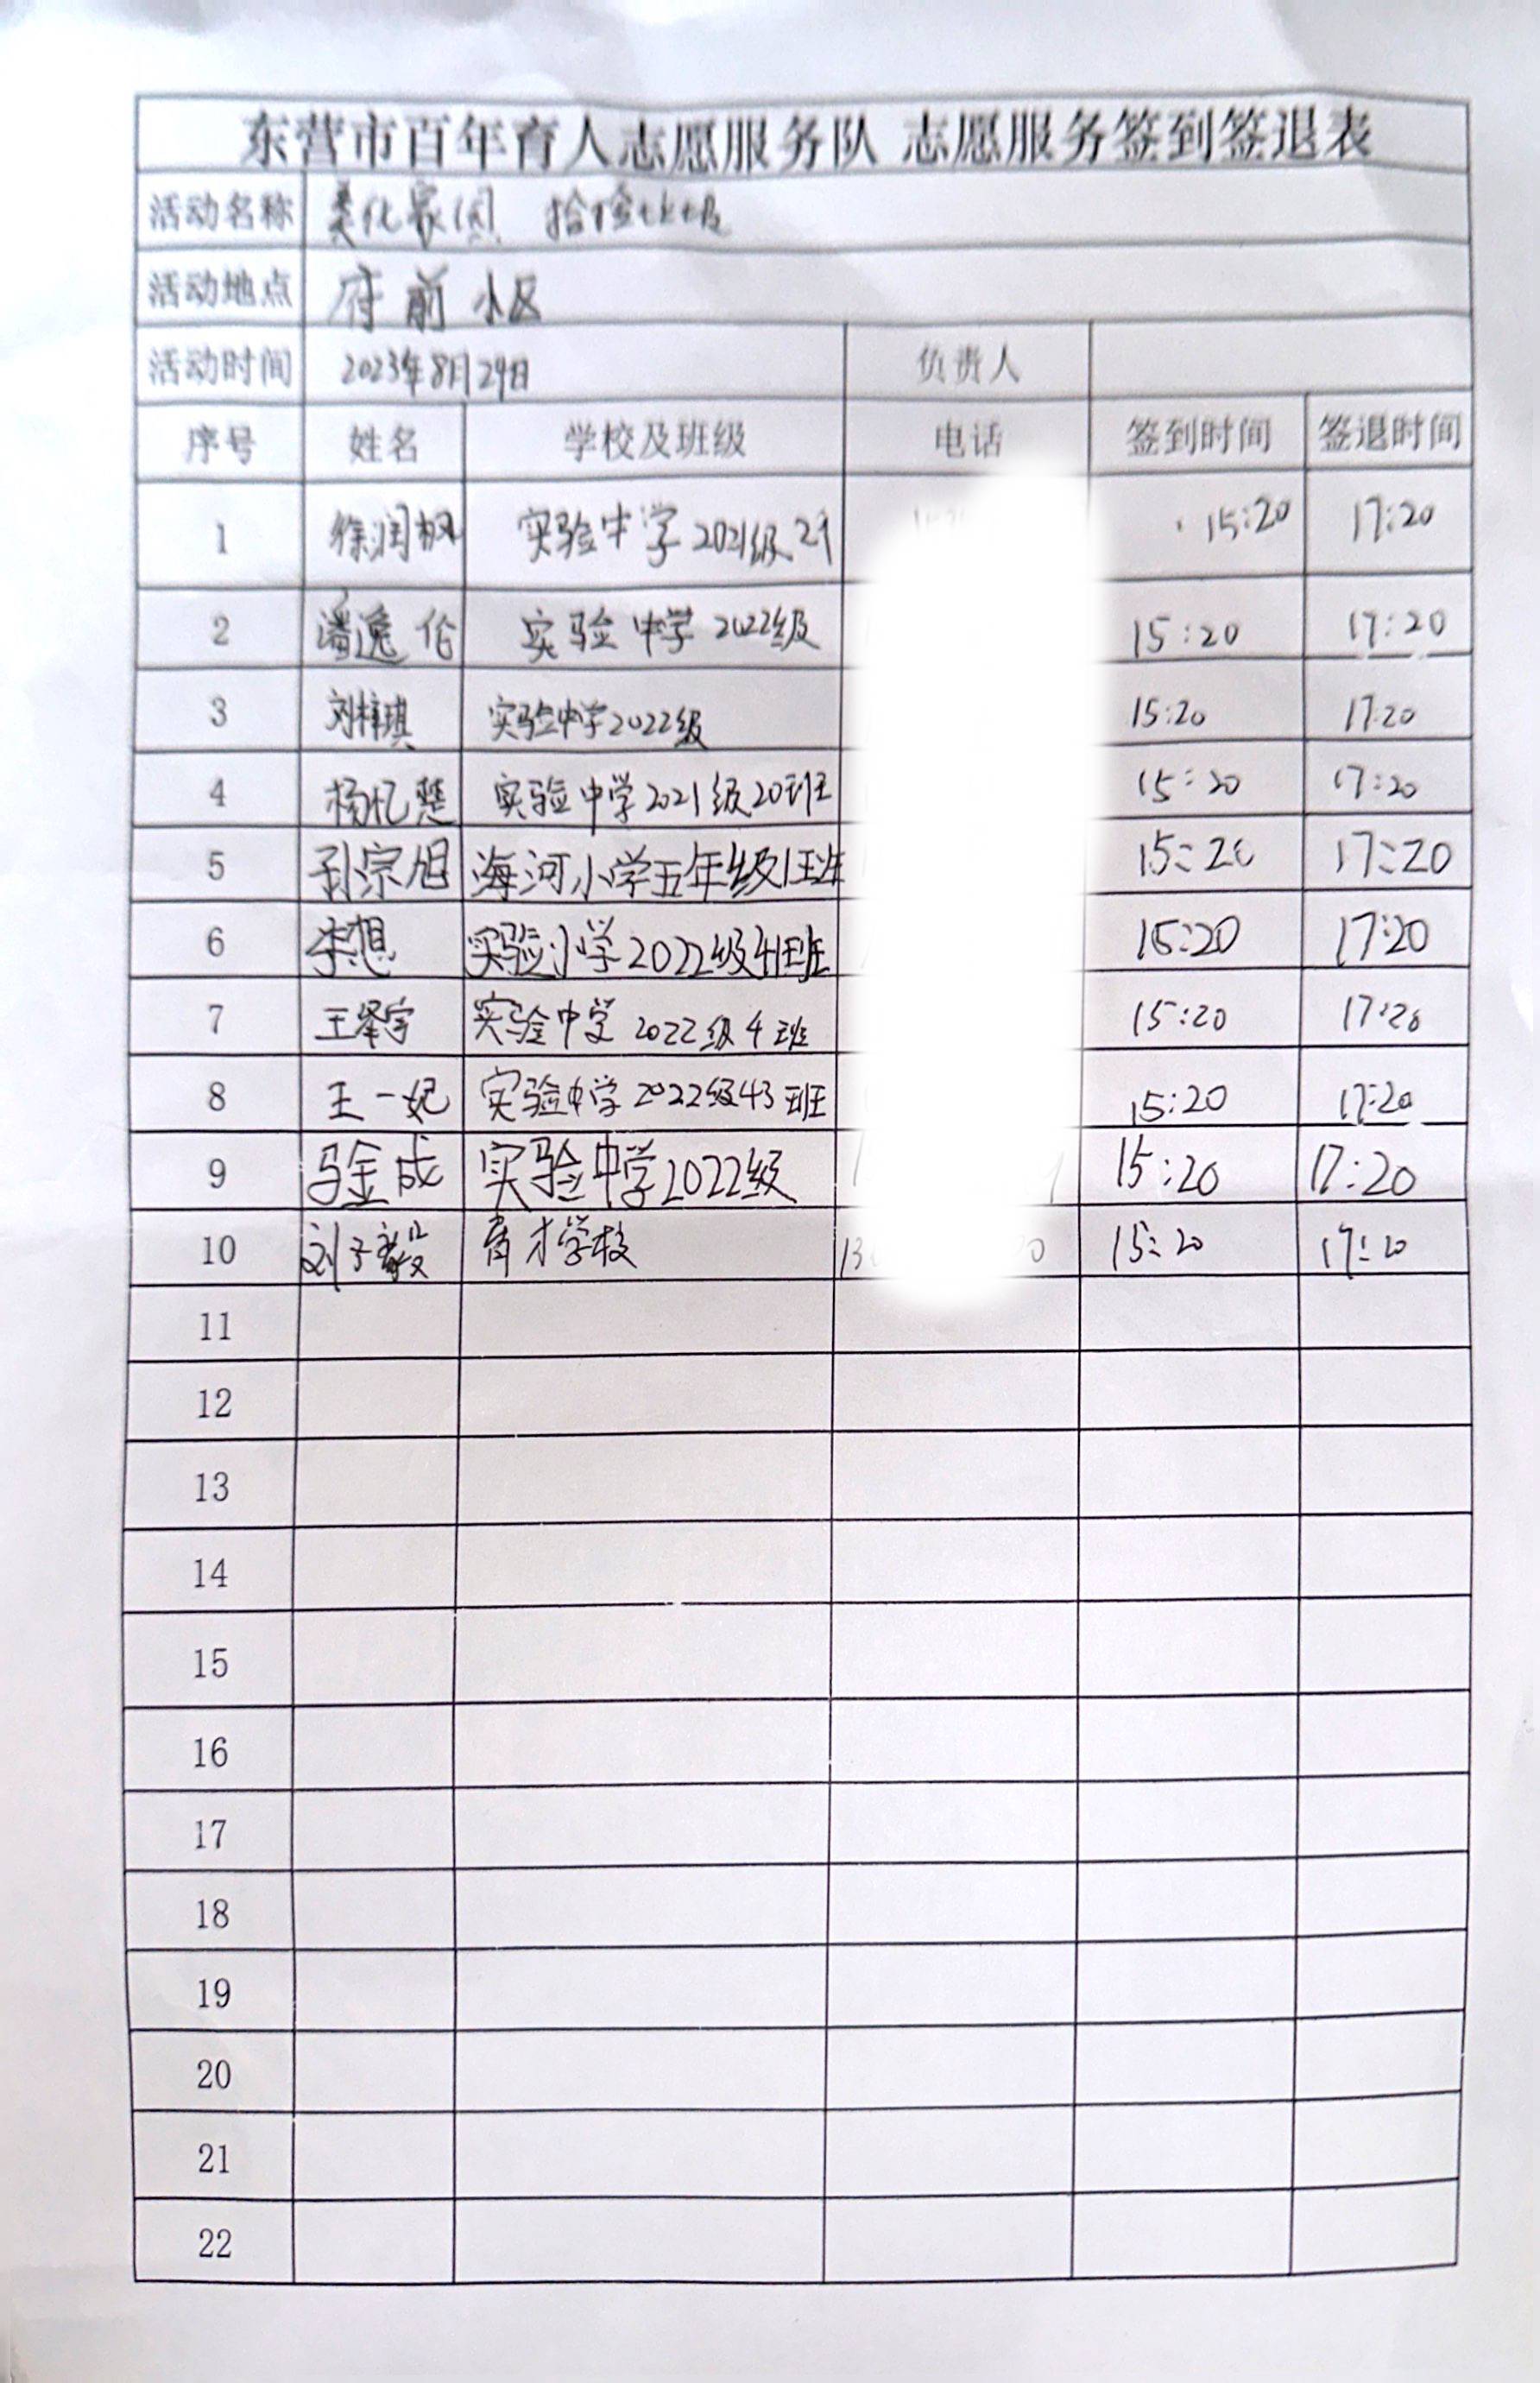 东营市百年育人志愿服务队 志愿服务签到签退表
活动名称 美化家园 捡拾垃圾
活动地点 府前小区
活动时间 2023年8月29日 负责人
序号 姓名 学校及班级 电话 签到时间 签退时间
1 徐润枫 实验中学2021级29 15:20 17:20
2 潘逸伦 实验中学2022级 15:20 17:20
3 刘梓琪 实验中学2022级 15:20 17:20
4 杨忆慧 实验中学2021级20班 15:20 17:20
5 孙宗旭 海河小学五年级1班 15:20 17:20
6 李想 实验小学2022级4班 15:20 17:20
7 王泽宇 实验中学2022级4班 15:20 17:20
8 王一妃 实验中学2022级43班 15:20 17:20
9 马金成 实验中学2022级 15:20 17:20
10 刘子毅 育才学校 13 20 15:20 17:20
11
12
13
14
15
16
17
18
19
20
21
22